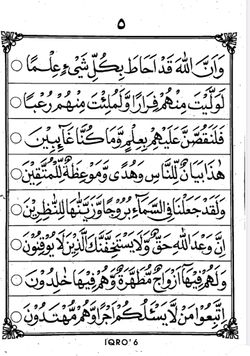 ٥
وَاَنَّ اللّٰهَ قَدْ اَحَاطَ بِكُلِّ شَيْءٍ عِلْمًا
لَوَلَّيْتَ مِنْهُمْ فِرَارًا وَّلَمُلِئْتَ مِنْهُمْ رُعْبًا
فَلَنَقُصَّنَّ عَلَيْهِمْ بِعِلْمٍ وَّمَا كُنَّا غَآئِبِيْنَ
هٰذَا بَيَانٌ لِّلنَّاسِ وَهُدًى وَّمَوْعِظَةٌ لِّلْمُتَّقِيْنَ
وَلَقَدْ جَعَلْنَا فِى السَّمَآءِ بُرُوْجًا وَّزَيَّنّٰهَا لِلنّٰظِرِيْنَ
اِنَّ وَعْدَ اللّٰهِ حَقٌّ وَّلَا يَسْتَخِفَّنَّكَ الَّذِيْنَ لَا يُوْقِنُوْنَ
وَلَهُمْ فِيْهَآ اَزْوَاجٌ مُّطَهَّرَةٌ وَّهُمْ فِيْهَا خٰلِدُوْنَ
اتَّبِعُوْا مَنْ لَّا يَسْئَلُكُمْ اَجْرًا وَّهُمْ مُّهْتَدُوْنَ
IQRO' 6